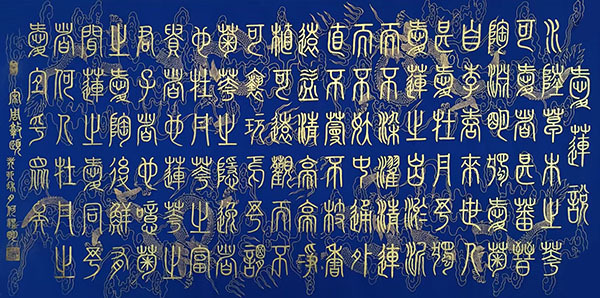 愛蓮說
水陸草木之花
可愛者甚蕃晉
陶淵明獨愛菊
自李唐來世人
甚愛牡丹予獨
愛蓮之出淤泥
而不染濯清漣
而不妖中通外
直不蔓不枝香
遠益清亭亭淨
植可遠觀而不
可褻玩焉予謂
菊花之隱逸者
也牡丹花之富
貴者也蓮花之
君子者也噫菊
之愛陶後鮮有
聞蓮之愛同予
者何人牡丹之
愛宜乎眾矣
宋周敦頤